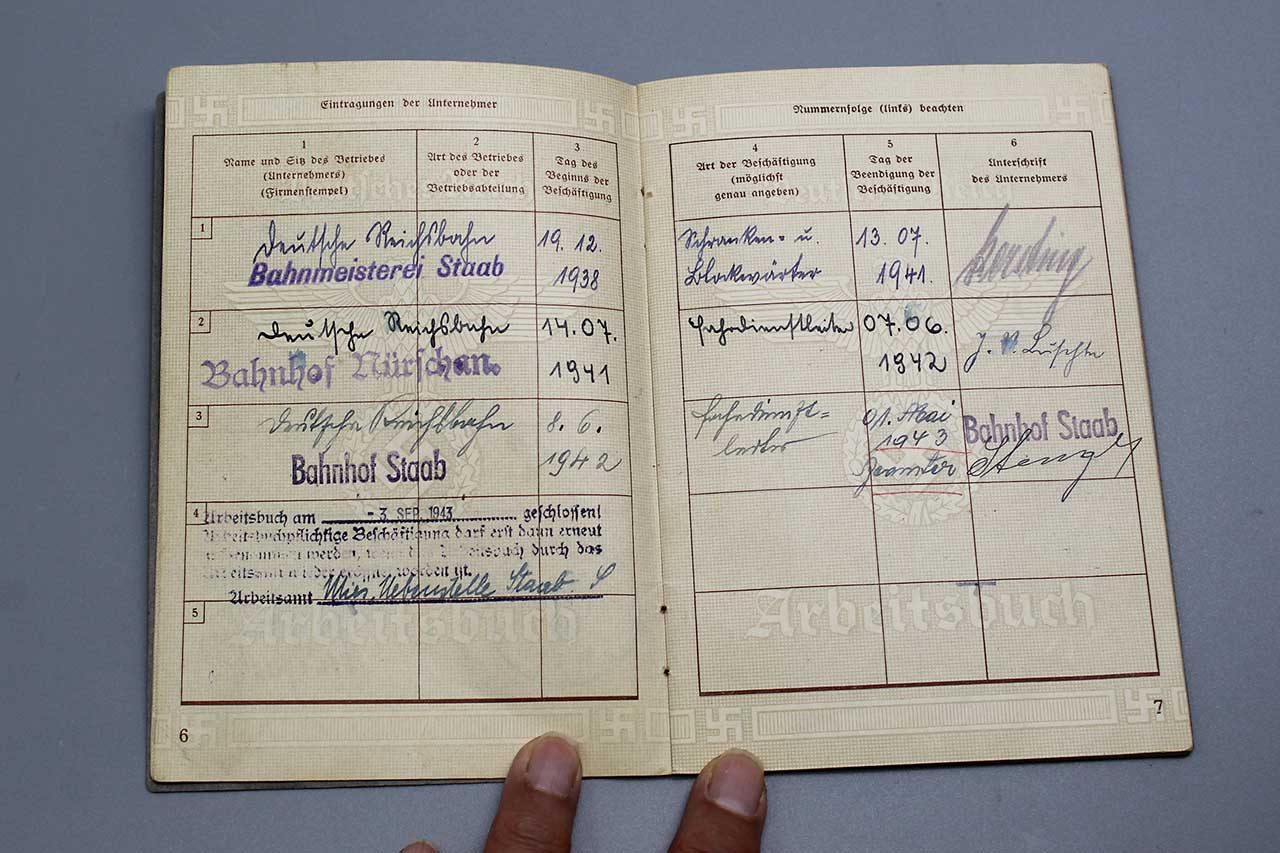 Eintragungen der Unternehmer
1
Name und Sitz des Betriebes
(Unternehmers)
(Firmenstempel)
2
Art des Betriebes
oder der
Betriebsabteilung
3
Tag des
Beginns der
Beschäftigung
1
Deutsche Reichsbahn
Bahnmeisterei Staab
19. 12.
1938
2
Deutsche Reichsbahn
Bahnhof Nürschan.
14.07.
1941
3
Deutsche Reichsbahn
Bahnhof Staab
8. 6.
1942
4
Arbeitsbuch am - 3. SEP. 1943 geschlossen!
Arbeitsbuchpflichtige Beschäftigung darf erst dann erneut
werden, wenn das Arbeitsbuch durch das
Arbeitsamt wieder eröffnet worden ist.
Arbeitsamt Mies, Nebenstelle Staab
5
Arbeitsbuch
6
Nummernfolge (links) beachten
4
Art der Beschäftigung
(möglichst
genau angeben)
5
Tag der
Beendigung der
Beschäftigung
6
Unterschrift
des Unternehmers
Schranken- u.
Blockwärter
13.07.
1941.
Fahrdienstleiter
07.06.
1942
J. V.
Fahrdienst=
leiter
01. Mai
1943
Beamter
Bahnhof Staab
Arbeitsbuch
7